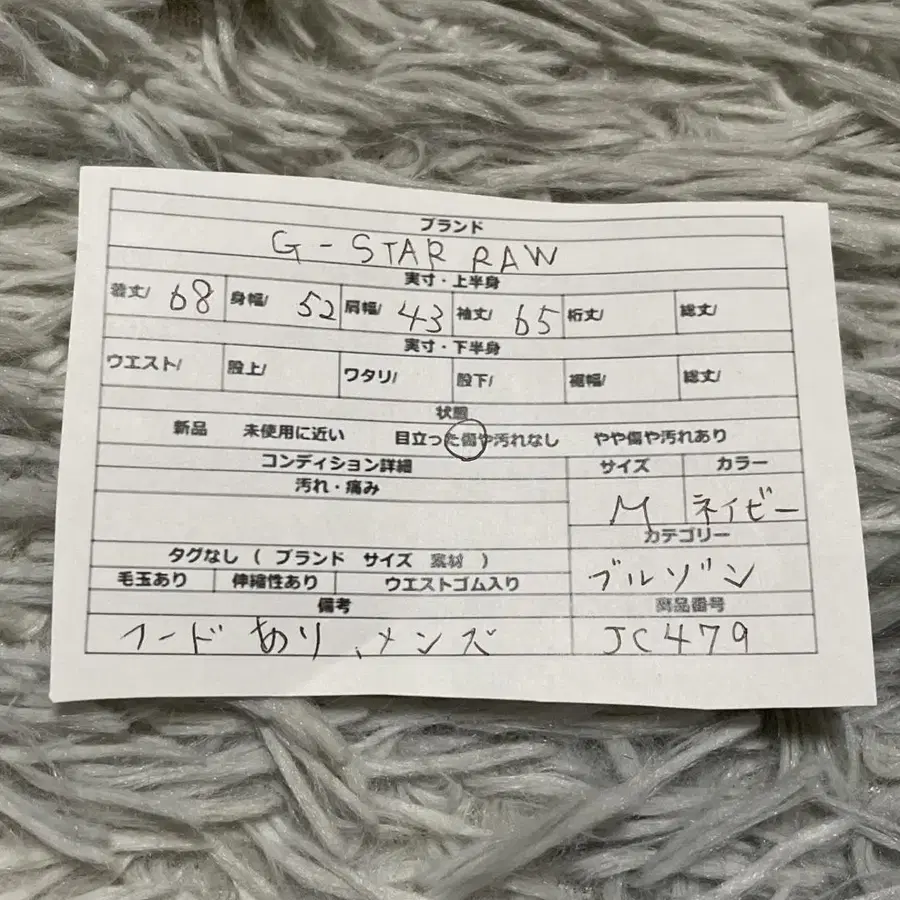 ブランド
G-STAR RAW
実寸・上半身
着丈/ 68 身幅/ 52 肩幅/ 43 袖丈/ 65 裄丈/ 総丈/
実寸・下半身
ウエスト/ 股上/ ワタリ/ 股下/ 裾幅/ 総丈/
状態
新品 未使用に近い 目立った傷や汚れなし やや傷や汚れあり
コンディション詳細 サイズ カラー
汚れ・痛み
M ネイビー
カテゴリー
タグなし ( ブランド サイズ 素材 )
ブルゾン
毛玉あり 伸縮性あり ウエストゴム入り
備考 商品番号
フードあり、メンズ JC479